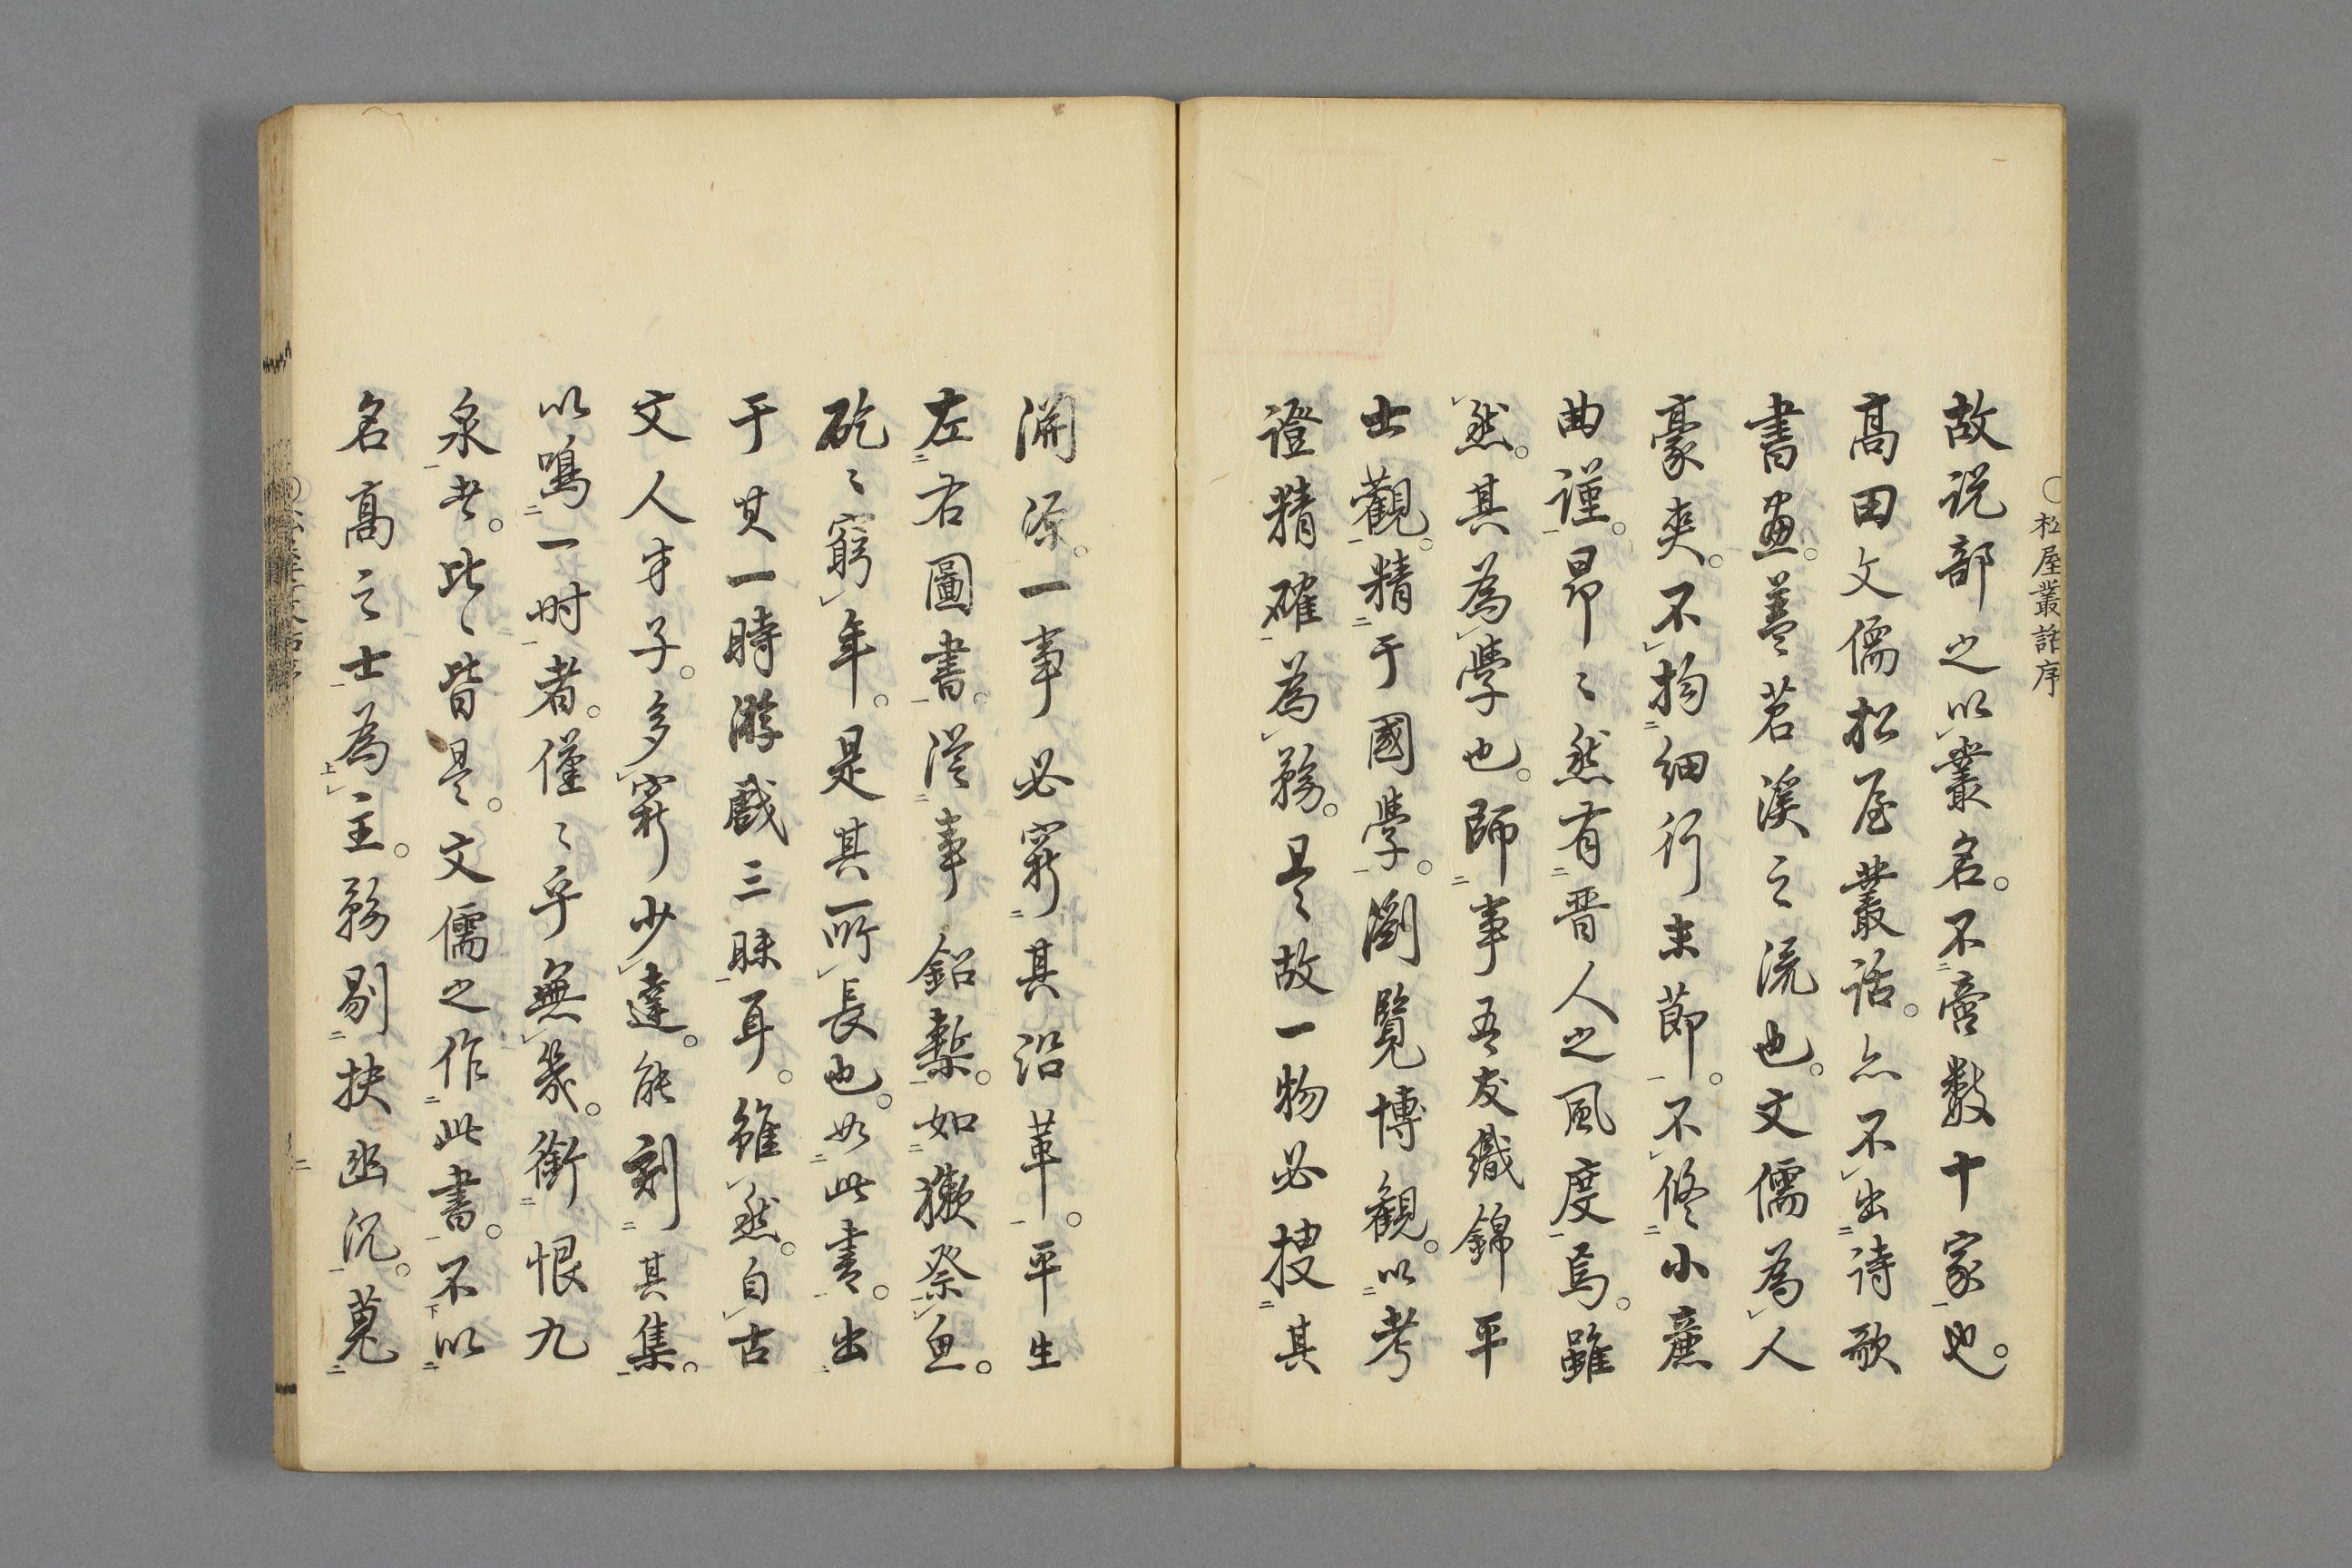 ○松屋叢話序
故說部之以叢名。不啻數十家也。
高田文儒松屋叢話。亦不出詩歌
書畫。蓋苕溪之流也。文儒為人
豪爽。不拘細行末節。不修小廉
曲謹。昂〻然有晋人之風度焉。雖
然。其為學也。師事吾友織錦平
士觀。精于國學。瀏覽博觀。以考
證精確為務。是故一物必搜其
淵源。一事必竅其沿革。平生
左右圖書。從事鉛槧。如獺祭魚。
矻〻窮年。是其所長也。如此書。出
于其一時游戲三昧耳。雖然。自古
文人才子。多窮少達。能刻其集。
以鳴一時者。僅〻乎無幾。銜恨九
泉者。比〻皆是。文儒之作此書。不以
名高之士為主。務剔抉幽沉。蒐
二